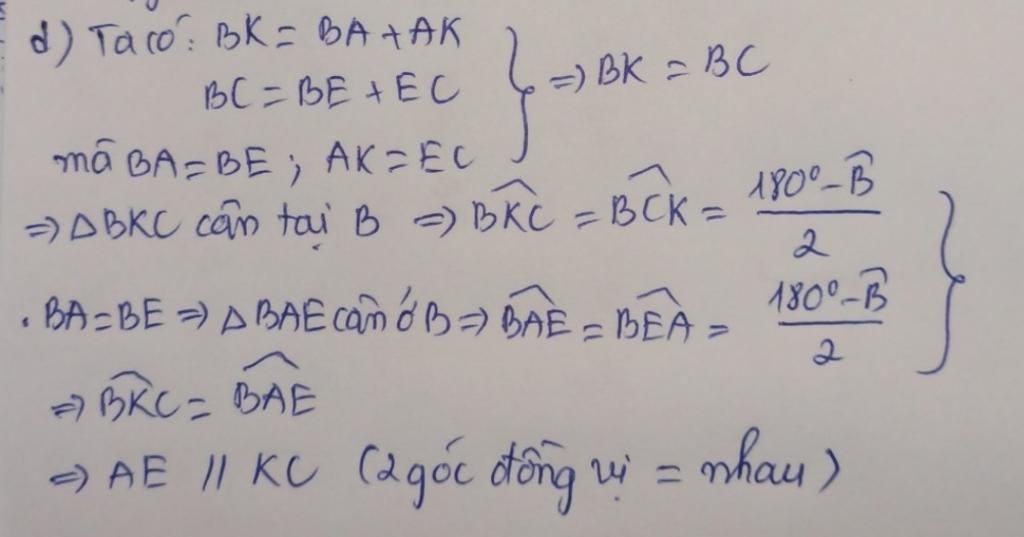 d) Ta có: BK = BA + AK
BC = BE + EC } => BK = BC
mà BA = BE ; AK = EC
=> ΔBKC cân tại B => \widehat{BKC} = \widehat{BCK} = \frac{180° - \widehat{B}}{2}
. BA = BE => ΔBAE cân ở B => \widehat{BAE} = \widehat{BEA} = \frac{180° - \widehat{B}}{2} }
=> \widehat{BKC} = \widehat{BAE}
=> AE // KC (2 góc đồng vị = nhau)